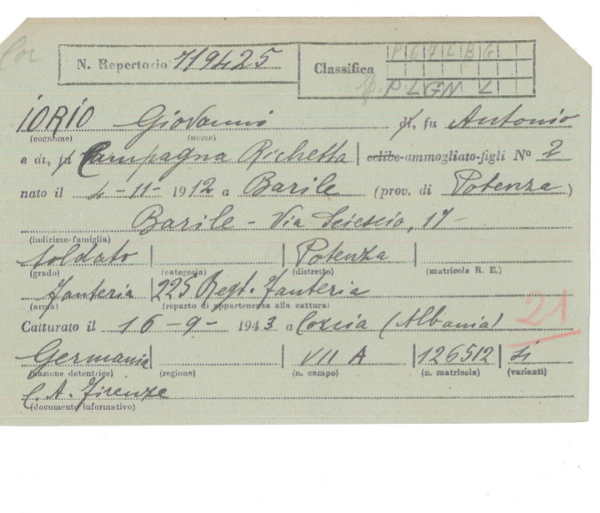 N. Repertorio 719425 Classifica
IORIO Giovanni di, fu Antonio
(cognome) (nome)
e di, fu Campagna Richetta celibe-ammogliato-figli N° 2
nato il 4-11-1912 a Barile (prov. di Potenza)
Barile - Via 17-
(indirizzo famiglia)
Soldato Potenza
(grado) (categoria) (distretto) (matricola R. E.)
Fanteria 225 Regt. Fanteria
(arma) (reparto di appartenenza alla cattura)
21
Catturato il 16-9-1943 a (Albania)
Germania VII A 126512 si
(nazione detentrice) (regione) (n. campo) (n. matricola) (varianti)
C. A. Firenze
(documento informativo)